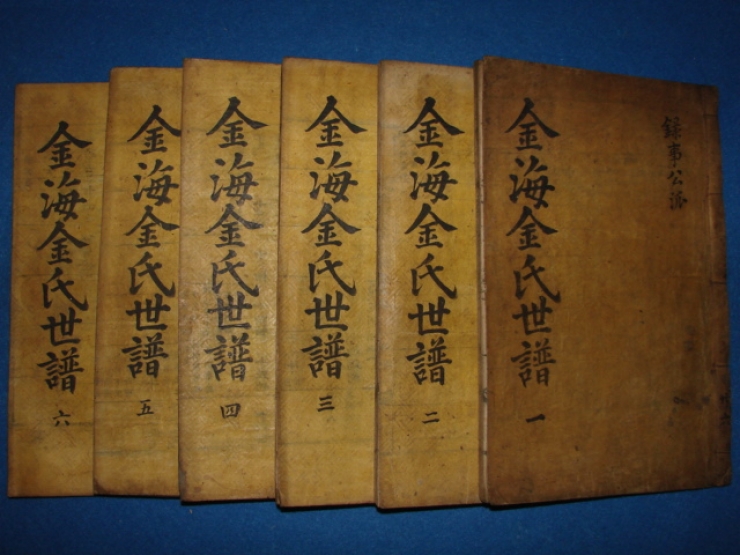 錄事公派
金海金氏世譜 一
金海金氏世譜 二
金海金氏世譜 三
金海金氏世譜 四
金海金氏世譜 五
金海金氏世譜 六